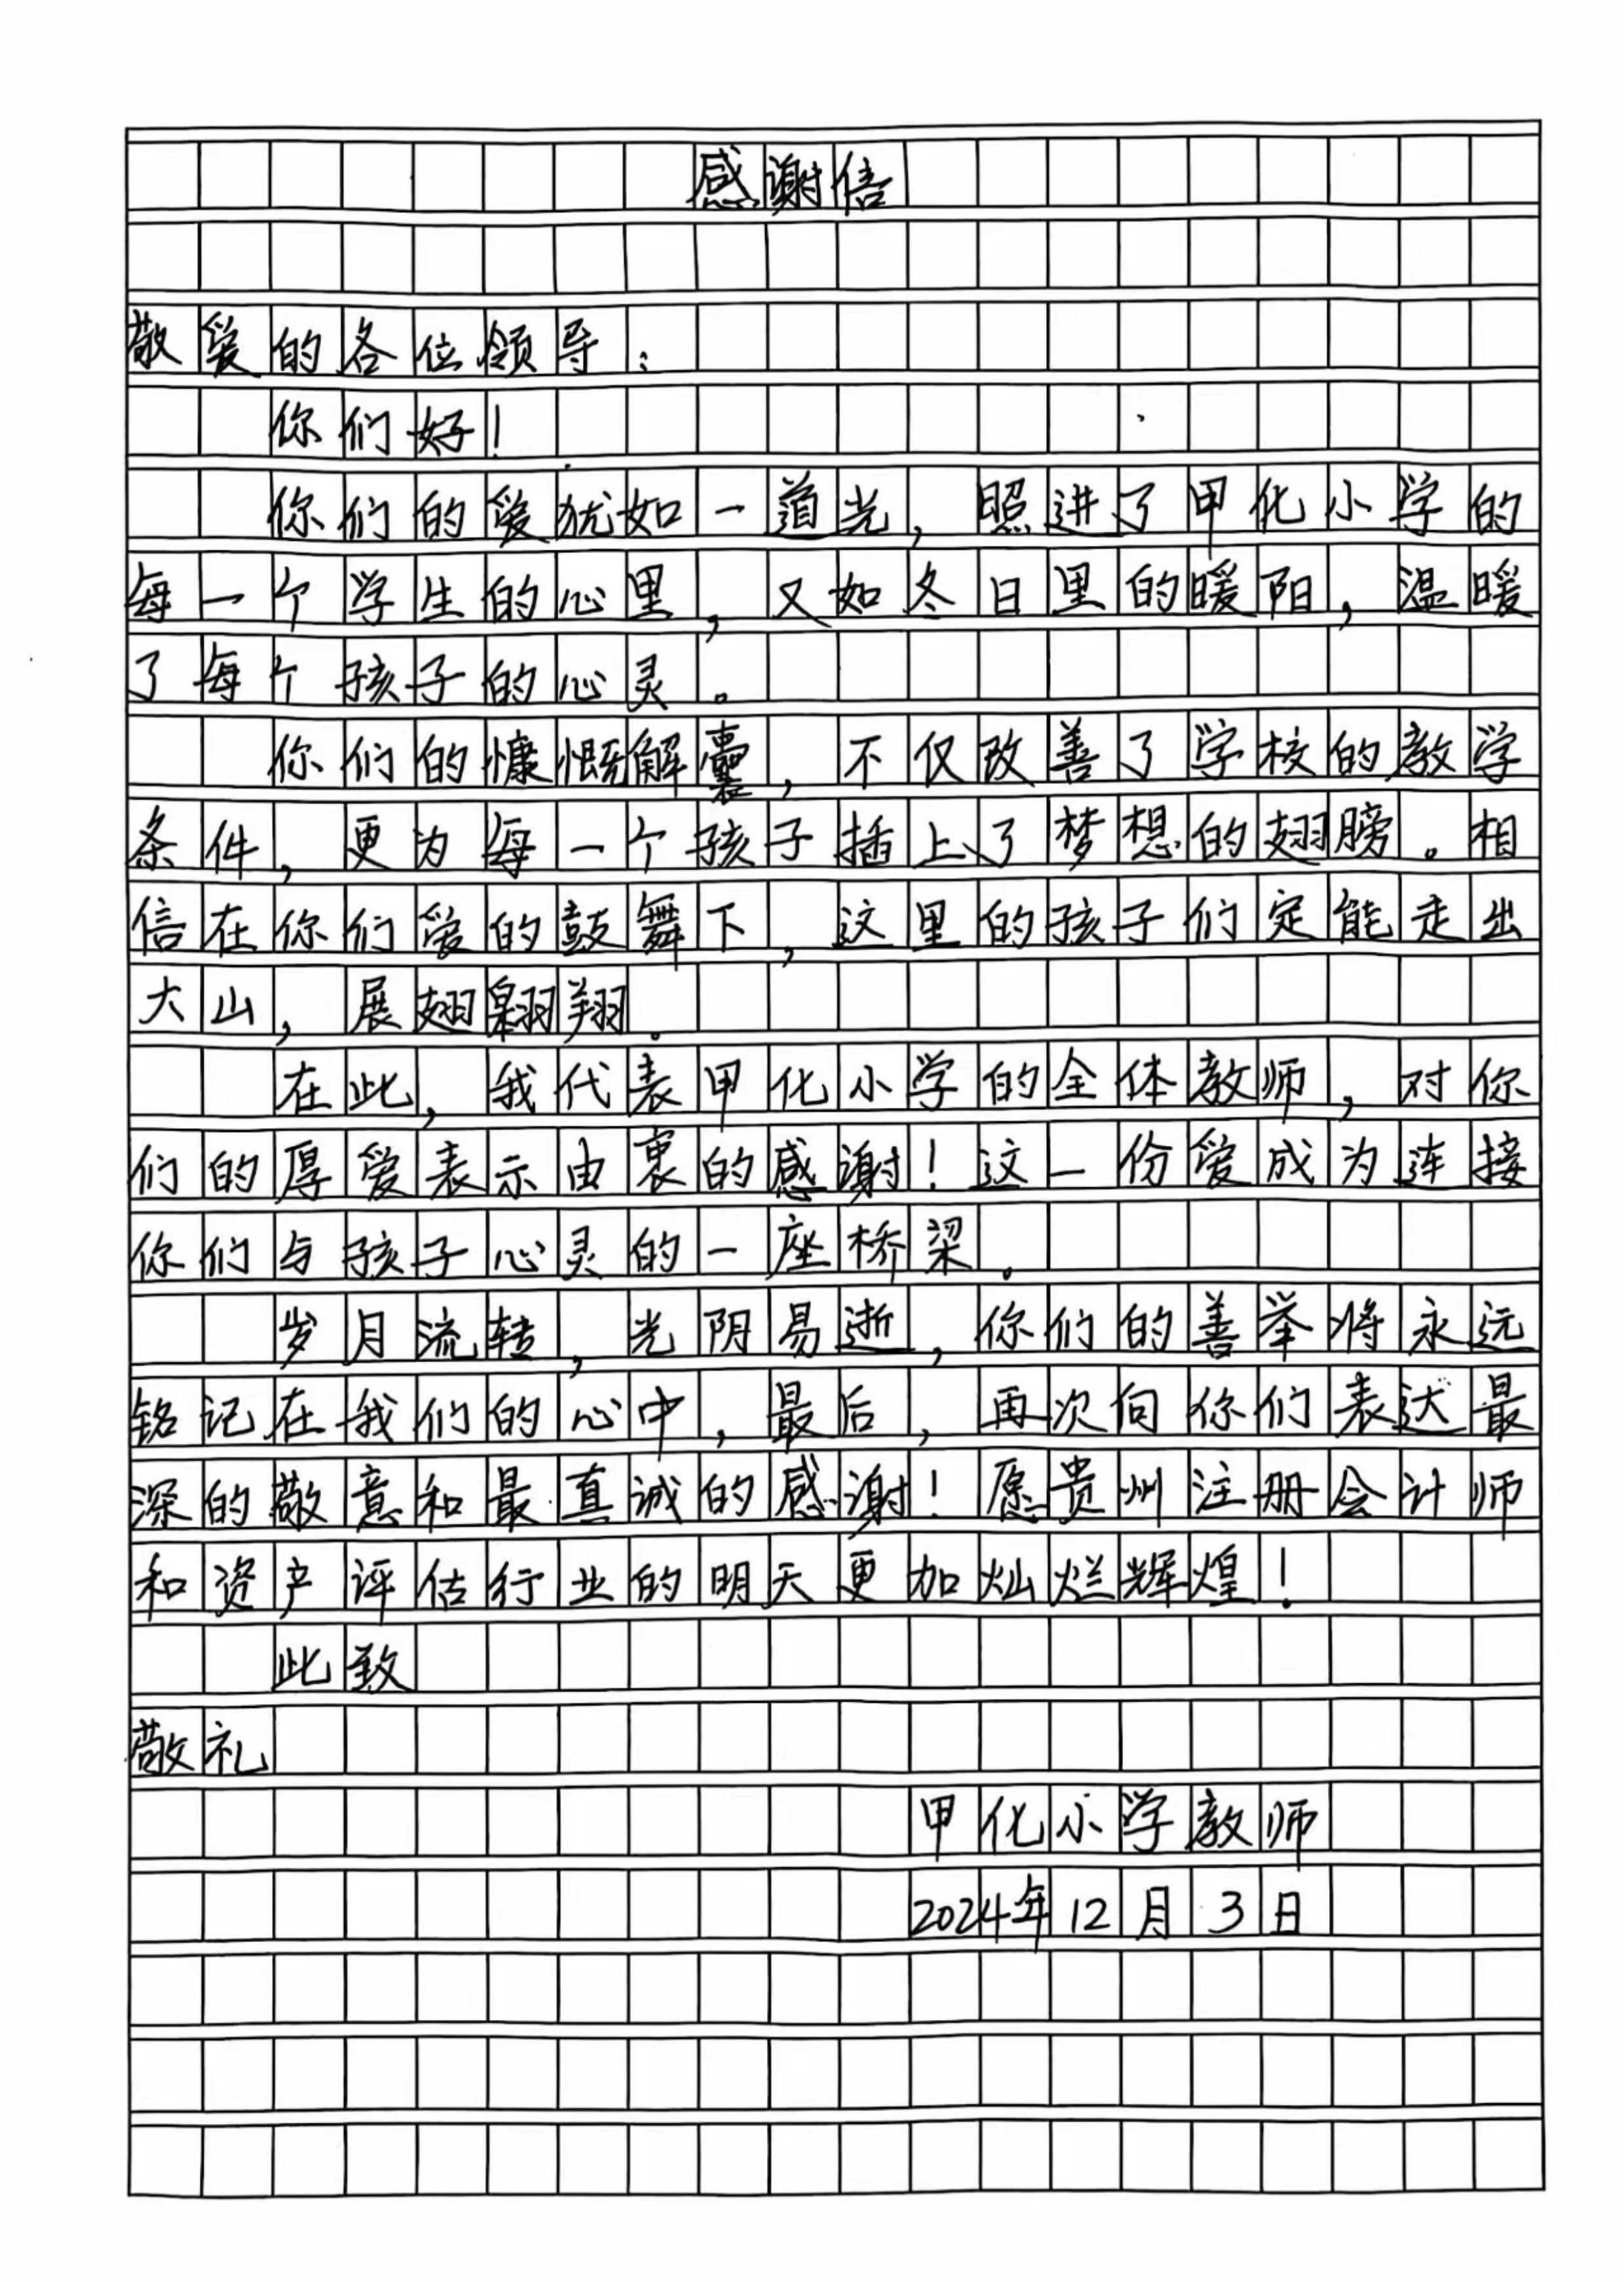 感谢信
敬爱的各位领导：
你们好！
你们的爱犹如一道光，照进了甲化小学的
每一个学生的心里，又如冬日里的暖阳，温暖
了每个孩子的心灵。
你们的慷慨解囊，不仅改善了学校的教学
条件，更为每一个孩子插上了梦想的翅膀。相
信在你们爱的鼓舞下，这里的孩子们定能走出
大山，展翅翱翔。
在此，我代表甲化小学的全体教师，对你
们的厚爱表示由衷的感谢！这一份爱成为连接
你们与孩子心灵的一座桥梁。
岁月流转，光阴易逝，你们的善举将永远
铭记在我们的心中，最后，再次向你们表达最
深的敬意和最真诚的感谢！愿贵州注册会计师
和资产评估行业的明天更加灿烂辉煌！
此致
敬礼
甲化小学教师
2024年12月3日